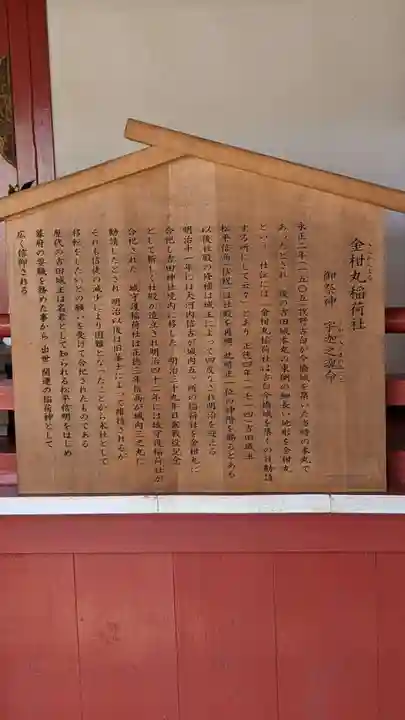 金柑丸稲荷社
御祭神 宇迦之魂命
永正二年(一五〇五)牧野古白が今橋城を築いた当時の本丸で
あったとされ 後の吉田城本丸の東側の細長い地形を金柑丸
という 社伝には「金柑丸稲荷社は古白今橋城を築くの日勧請
する所にして云々」とあり 正徳四年(一七一四)吉田城主
松平信高(信祝)は社殿を再興 延享正一位の神階を賜るとある
以後社殿の修補は城主によって四度なされ明治を迎える
明治十一年には大河内信古が城内五ヶ所の稲荷社を金柑丸に
合祀し吉田神社境内に移した 明治三十九年日露戦役記念
として新しく社殿の造立され明治四十二年には城守護稲荷社が
合祀された 城守護稲荷社は正徳二年信高が城内三之丸に
勧請したとされ 明治以後は旧藩士によって維持されるが
それも信徒の減少により困難となったことから末社として
移転をしたいとの願いを受けて合祀されたものである
歴代の吉田城主は名君として知られる松平信明をはじめ
幕府の要職を務めた事から 出世 開運の稲荷神として
広く信仰される